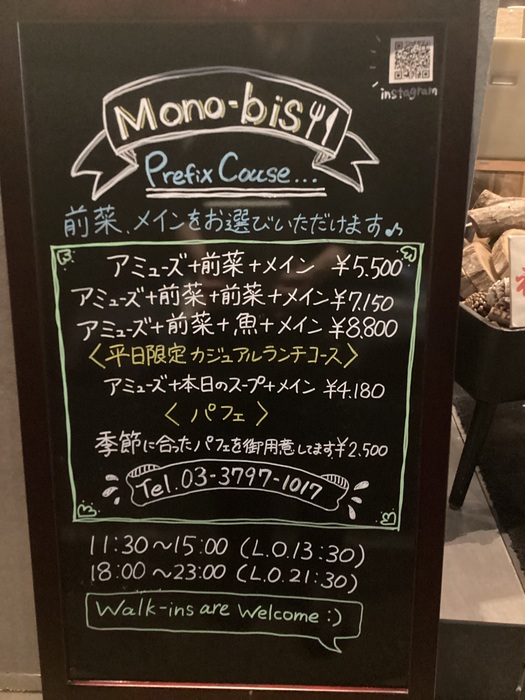 instagram
Mono-bis
Prefix Couse...
前菜、メインをお選びいただけます♪
アミューズ+前菜+メイン ¥5.500
アミューズ+前菜+前菜+メイン¥7,150
アミューズ+前菜+魚+メイン ¥8,800
〈平日限定 カジュアルランチコース〉
アミューズ+本日のスープ+メイン ¥4.180
〈パフェ〉
季節に合ったパフェを御用意してます¥2,500
Tel.03-3797-1017
11:30～15:00 (L.O.13:30)
18:00～23:00 (L.O.21:30)
Walk-ins are Welcome :)